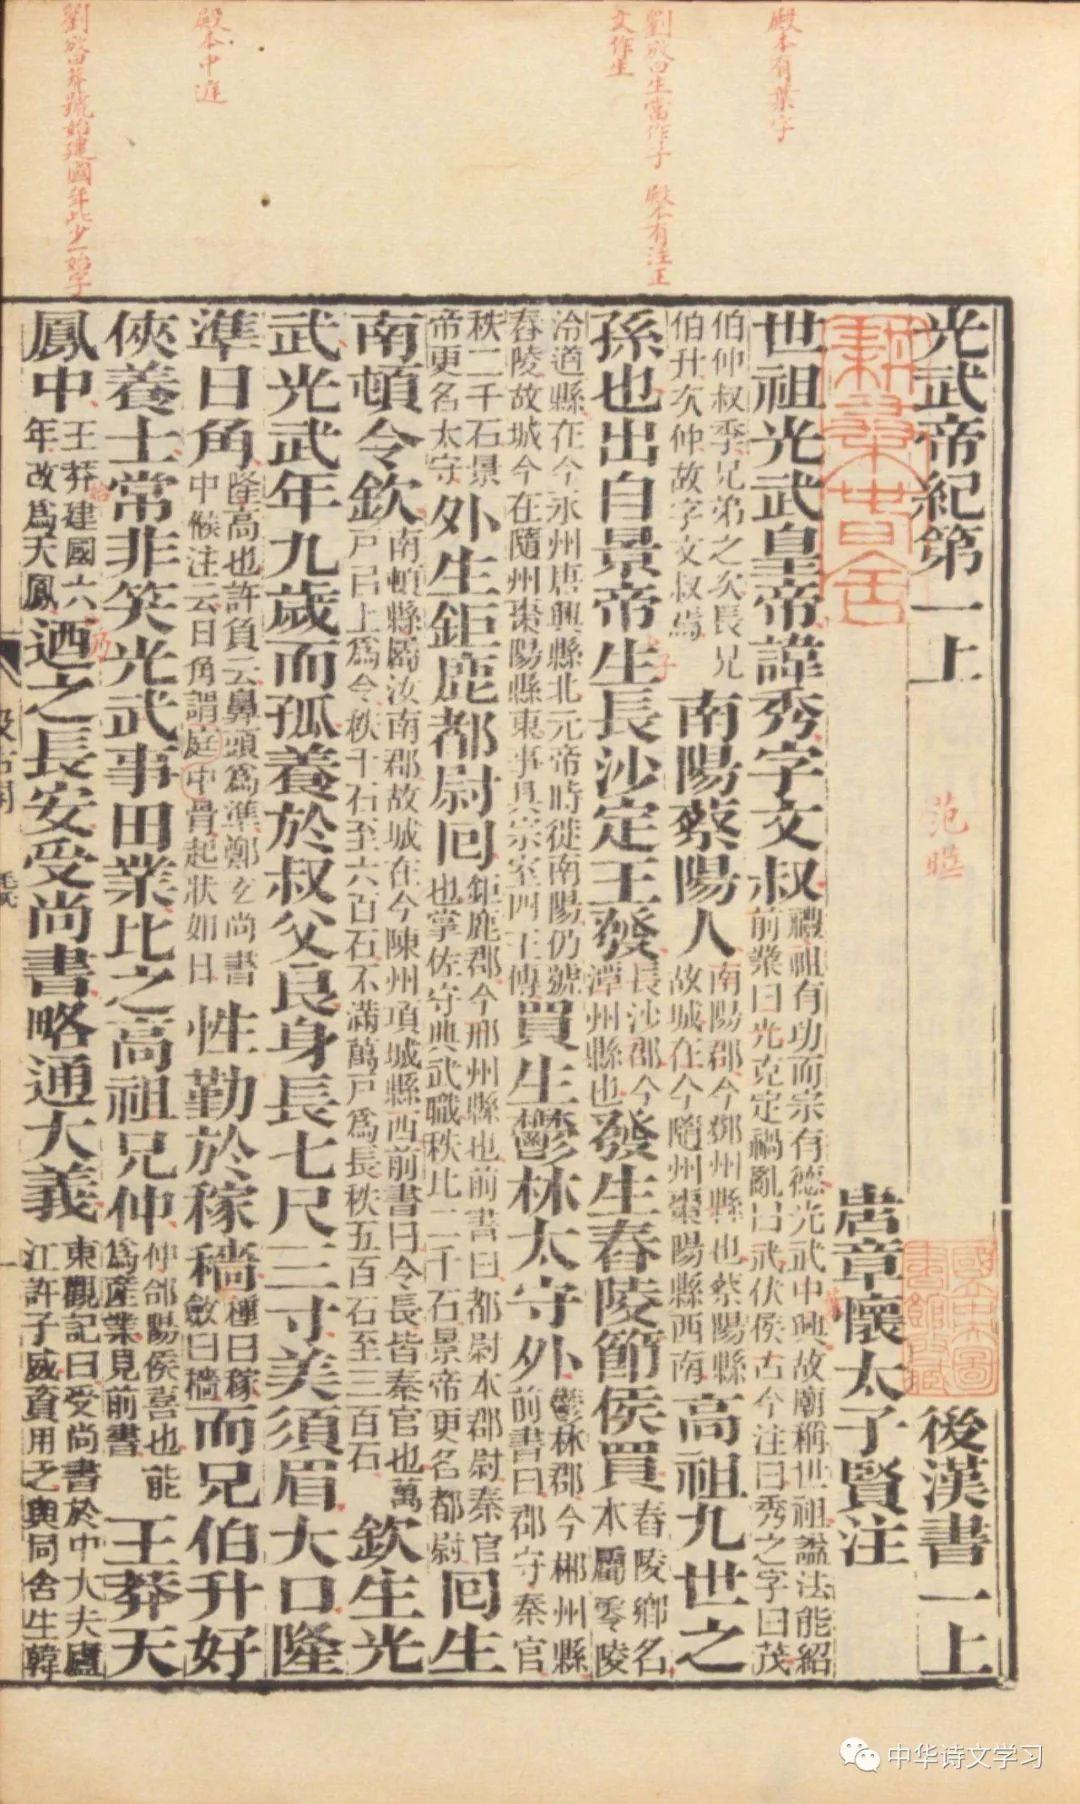 殿本有葉字
劉攽曰生當作子 殿本有注正
文作生
殿本中庭
劉攽曰莽號始建國年此少一始字
光武帝紀第一上 後漢書一上
范曄
唐章懷太子賢注
世祖光武皇帝諱秀字文叔禮祖有功而宗有德光武中興故廟稱世祖諡法能紹前業曰光克定禍亂曰武伏侯古今注曰秀之字曰茂
伯仲叔季兄弟之次長兄伯升次仲故字文叔焉南陽蔡陽人南陽郡今鄧州縣也蔡陽縣故城在今隨州棗陽縣西南高祖九世之
孫也出自景帝生長沙定王發長沙郡今潭州縣也發生舂陵節侯買舂陵鄉名本屬零陵
泠道縣在今永州唐興縣北元帝時徙南陽仍號舂陵故城今在隨州棗陽縣東事具宗室四王傳買生鬱林太守外鬱林郡今郴州縣前書曰郡守秦官
秩二千石景帝更名太守外生鉅鹿都尉回鉅鹿郡今邢州縣也前書曰都尉本郡尉秦官也掌佐守典武職秩比二千石景帝更名都尉回生
南頓令欽南頓縣屬汝南郡故城在今陳州項城縣西前書曰令長皆秦官也萬戶已上爲令秩千石至六百石不滿萬戶爲長秩五百石至三百石欽生光
武光武年九歲而孤養於叔父良身長七尺三寸美須眉大口隆
準日角隆高也許負云鼻頭爲準鄭玄尚書中候注云日角謂庭中骨起狀如日性勤於稼穡種曰稼斂曰穡而兄伯升好
俠養士常非笑光武事田業比之高祖兄仲仲郃陽侯喜也能爲產業見前書王莽天
鳳中王莽建國六年改爲天鳳迺之長安受尚書略通大義東觀記曰受尚書於中大夫廬江許子威資用乏與同舍生韓
中华诗文学习